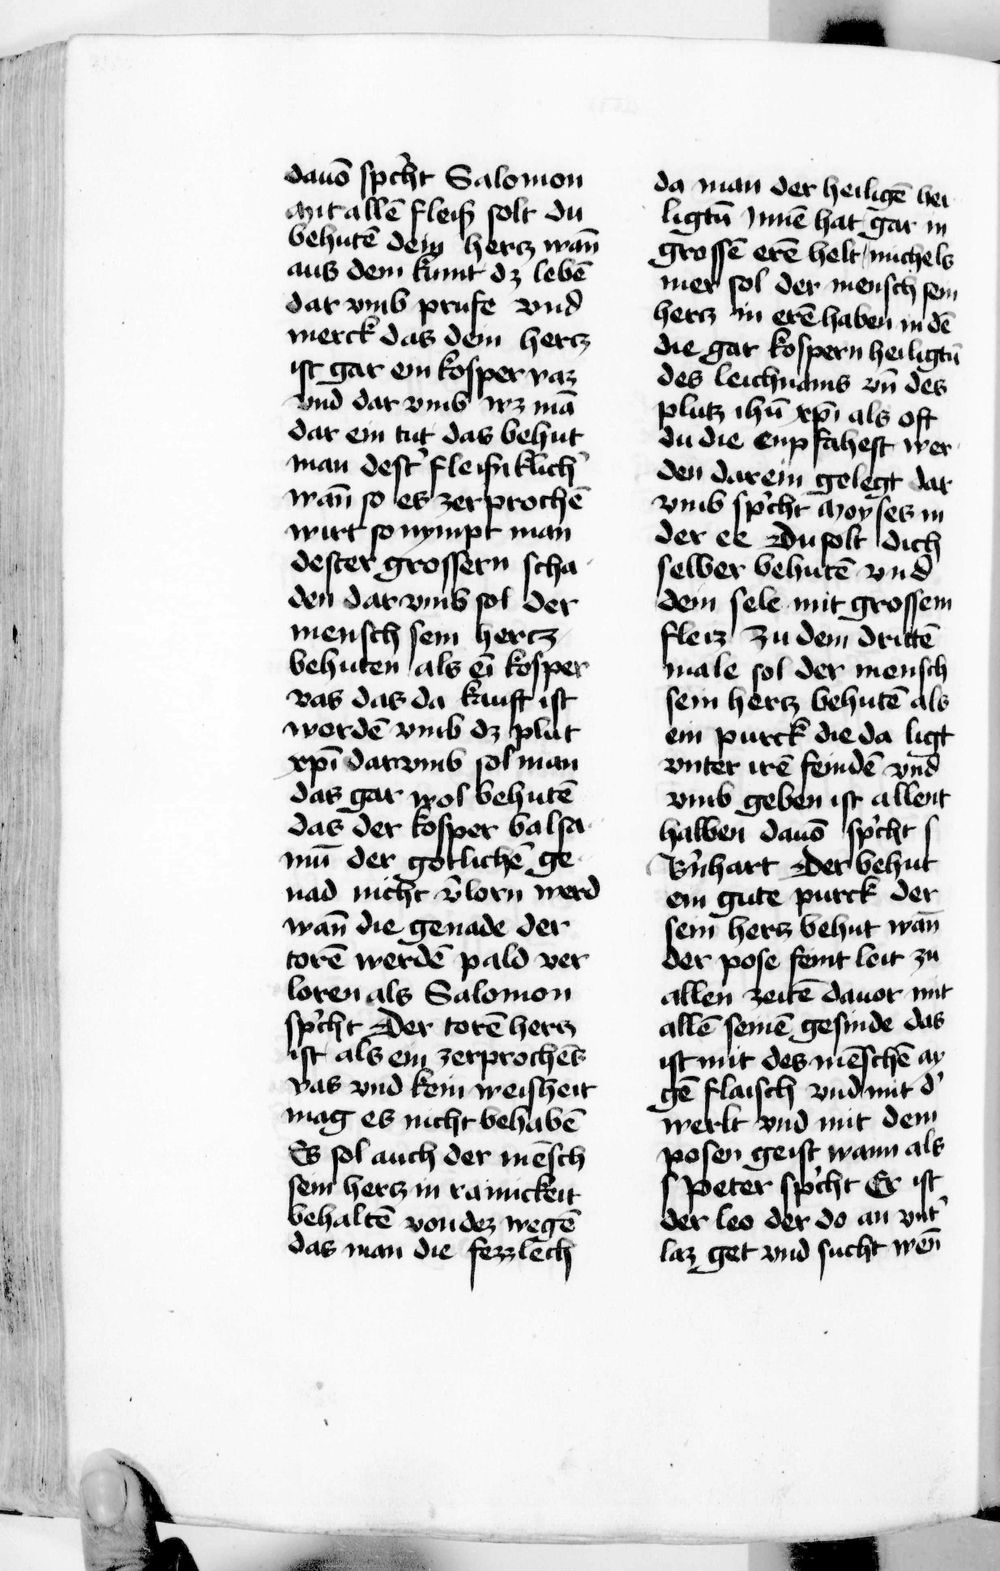 dauō spͨht Salomon
Mit allē fleiß solt du
behutē dein hercz wān
aus dem kumt dz lebē
dar vmb prufe vnd
merck das dein hercz
ist gar ein kosper vaz
vnd dar vmb wz mā
dar ein tut das behut
man destˀ fleisiklichˀ
wān so es zerprochē
wirt so nympt man
dester grossern scha
den dar vmb sol der
mensch sein hercz
behuten als eī kosper
vas das da kauft ist
wordē vmb dz plut
xpī darvmb sol man
das gar wol behutē
das der kosper balsa
mū der gotlichē ge
nad nicht v̓lorn werd
wān die genade der
torē werdē pald ver
loren als Salomon
spͨht Der torē hercz
ist als ein zerprochēs
vas vnd kein weisheit
mag es nicht behabē
Es sol auch der mēsch
sein hercz in rainickeit
behaltē von dez wegē
das man die fezzlech
da man der heiligē hei
ligtū Innē hat gar in
grossē erē helt michels
mer sol der mensch sein
hercz in erē haben in dē
die gar kospern heiligtū
des leichnams vn̄ des
plutz ihū xpī als oft
du die enpfahest wer
den darein gelegt dar
vmb spͨht Moyses in
der ee Du solt dich
selber behutē vnd
dein sele mit grossem
fleiz Zu dem drittē
male sol der mensch
sein hercz behutē als
ein purck die da ligt
vnter irē feindē vnd
vmb geben ist allent
halben dauō spͨht s
Bn̓hart Der behut
ein gute purck der
sein hercz behut wān
der pose feint leit zu
allen zeitē dauor mit
allē seinē gesinde das
ist mit des mēschē ay
gē flaisch vnd mit dˀ
werlt vnd mit dem
posen geist wann als
s Peter spͨht Er ist
der leo der do an vntˀ
laz get vnd sucht wen̄